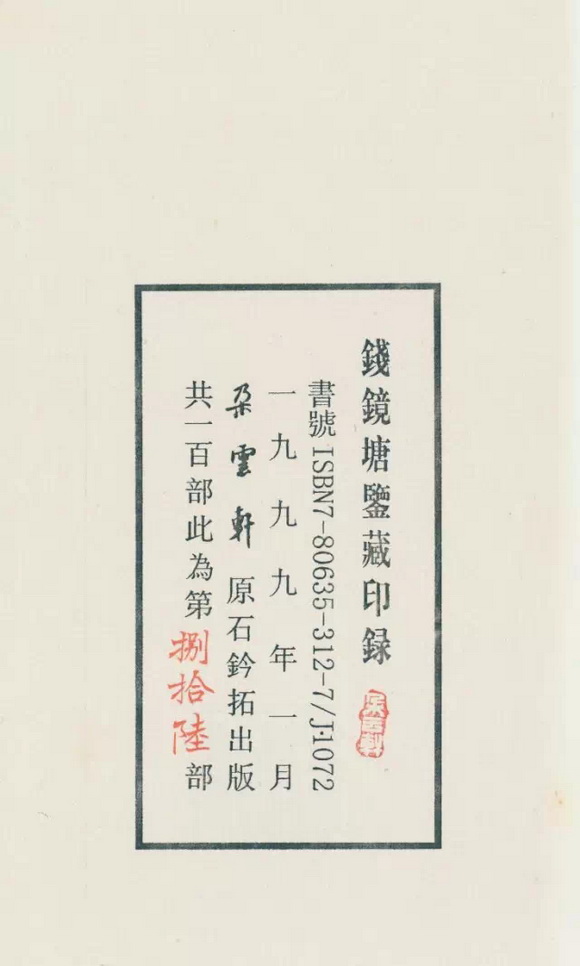 錢鏡塘鑒藏印録
書號ISBN7-80635-312-7/J·1072
一九九九年一月
朶雲軒原石鈐拓出版
共一百部此為第捌拾陸部